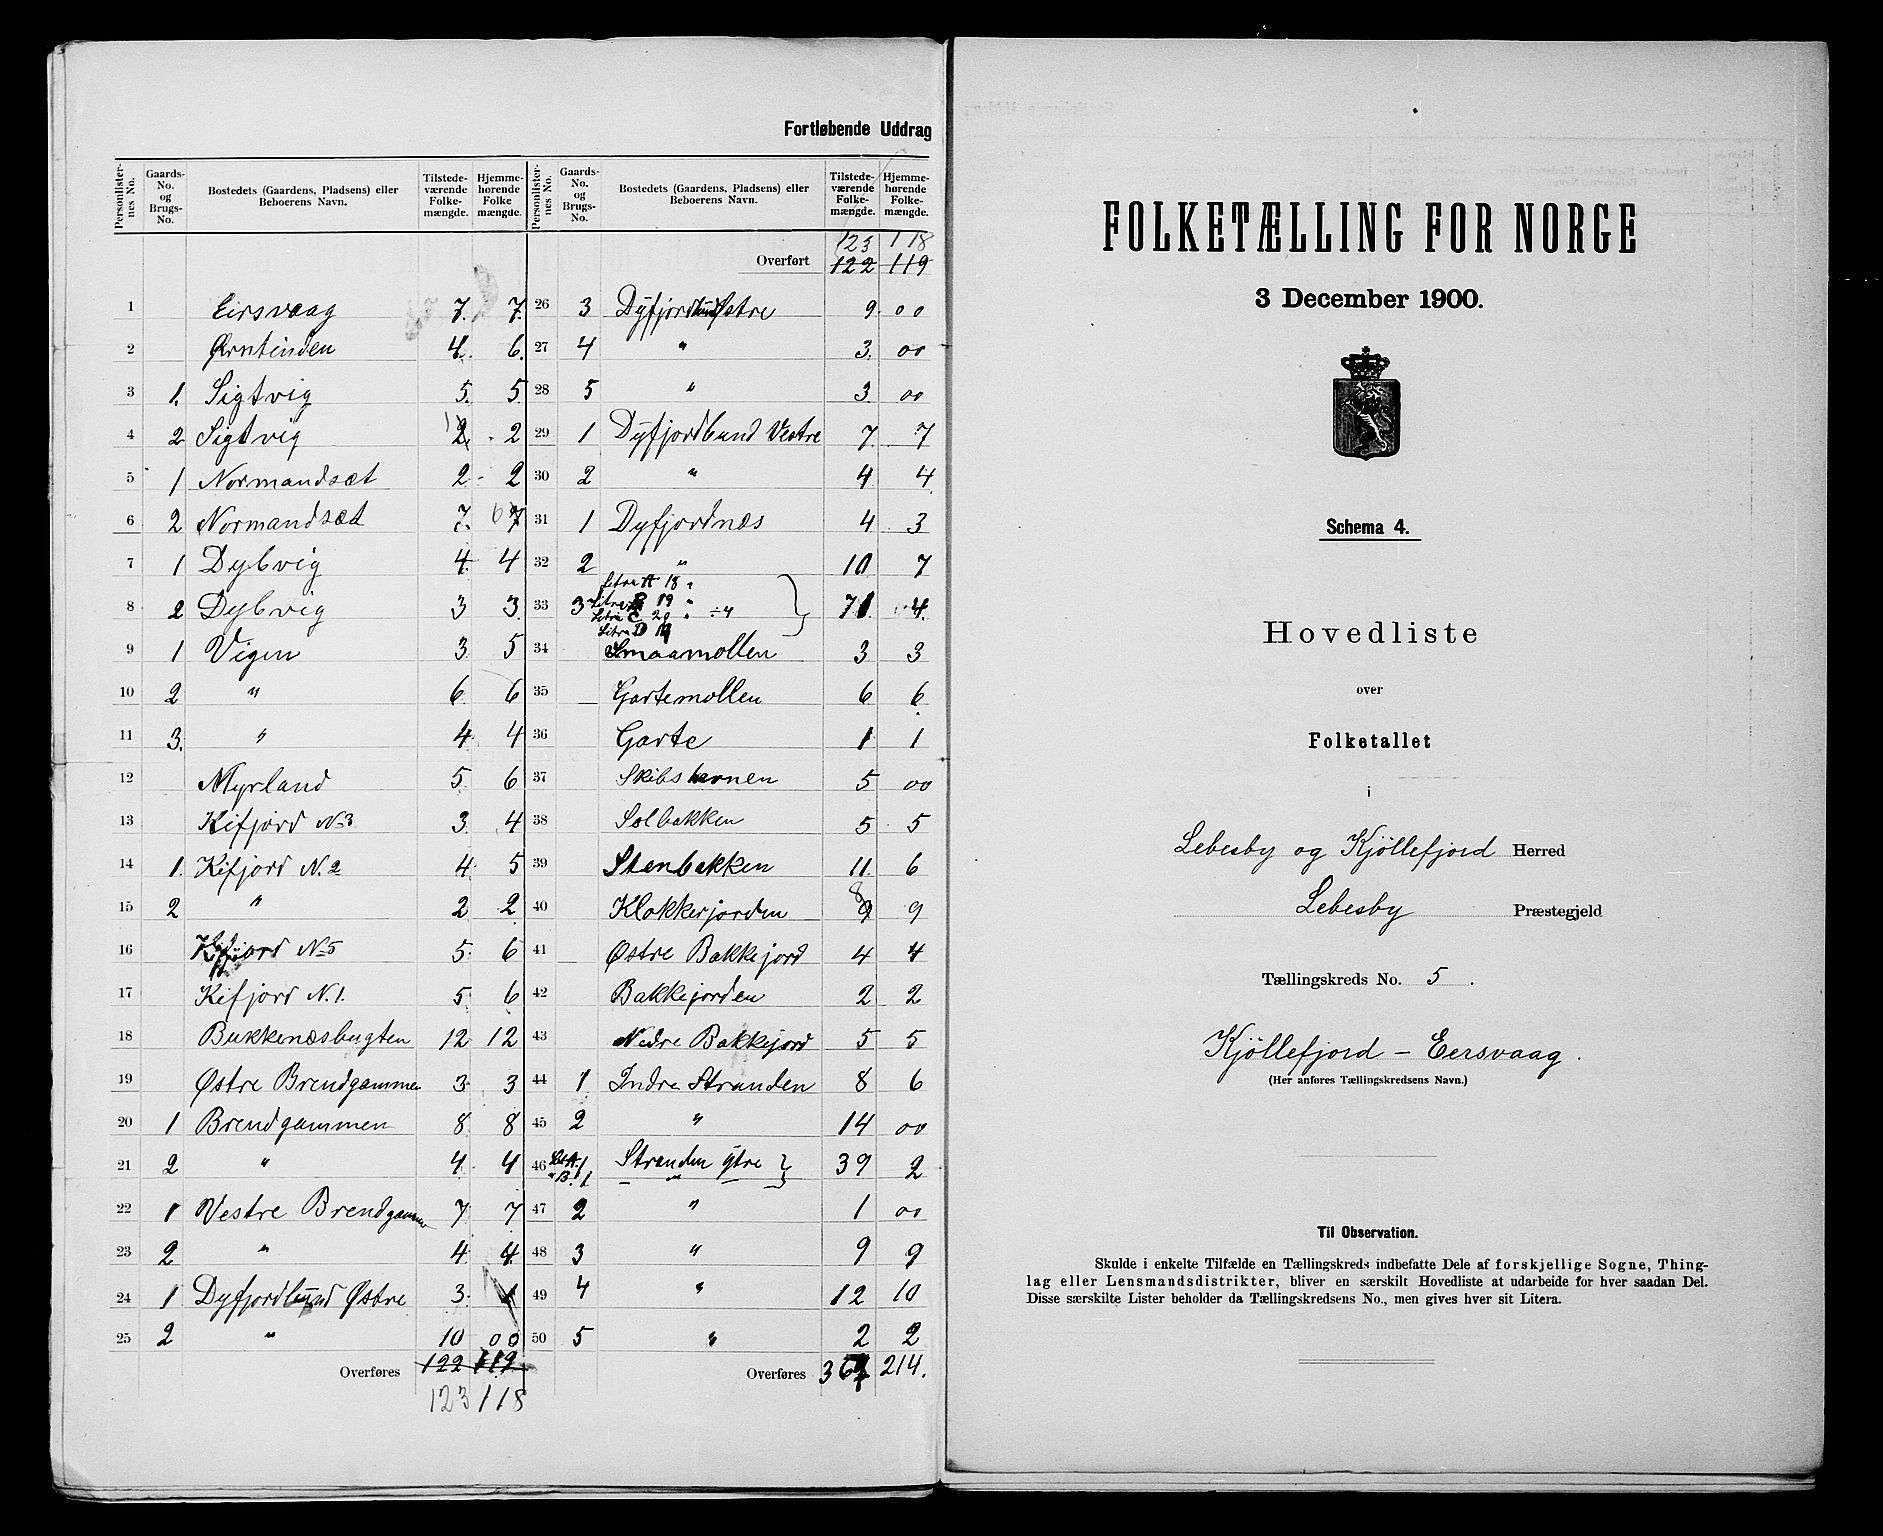 Fortløbende Uddrag
Personlisternes No. Gaards-No. og Brugs-No. Bostedets (Gaardens, Pladsens) eller Beboerens Navn. Tilstedeværende Folkemængde. Hjemmehørende Folkemængde.
1 Eirsvaag 7. 7.
2 Ørntinden 4. 6.
3 1. Sigtvig 5. 5.
4 2 Sigtvig 2
5 1 Normandsæt 2 2
6 2 Normandsæt 7. 7
7 1 Dybvig 4. 4
8 2 Dybvig 3 3.
9 1 Vigen 3. 5
10 2 " 6. 6
11 3. " 4 4
12 Myrland 5. 6
13 Kifjord No 3 3 4
14 1. Kifjord N. 2 4 5
15 2 " 2 2
16 Kifjord No 5 5 6
17 Kifjord N. 1. 5 6
18 Bukkenæsbugten 12 12
19 Østre Brendgammen 3 3
20 1 Brendgammen 8. 8
21 2 " 4. 4
22 1 Vestre Brendgammen 7 7
23 2 " 4. 4.
24 1 Dyfjordbund Østre 3. 1
25 2 " 10 00
Overføres 122 119
123 118
Personlisternes No. Gaards-No. og Brugs-No. Bostedets (Gaardens, Pladsens) eller Beboerens Navn. Tilstedeværende Folkemængde. Hjemmehørende Folkemængde.
123 118
Overført 122 119
26 3 Dyfjordbund Østre 9. 00
27 4 " 3. 00
28 5 " 3 00
29 1 Dyfjordbund Vestre 7. 7
30 2 " 4 4
31 1 Dyfjordnæs 4 3
32 2 " 10. 7
Litra A 18 "
33 3 Litra B 19 " 71. 4.
Litra C 20 " ÷4
Litra D
34 Smaamollen 3 3
35 Gartemollen 6 6
36 Garte 1 1
37 Skibshavnen 5 00
38 Solbakken 5 5
39 Stenbakken 11. 6
40 Klokkerjorden 9 9
41 Østre Bakkejord 4 4
42 Bakkejorden 2 2
43 Nedre Bakkejord 5 5
44 1 Indre Stranden 8 6
45 2 " 14 00
46 Lit A. 1 Stranden ytre 39 2
" B. 1 "
47 2 " 1 00
48 3 " 9 9
49 4 " 12 10
50 5 " 2 2
Overføres 214.
FOLKETÆLLING FOR NORGE
3 December 1900.
Schema 4.
Hovedliste
over
Folketallet
i
Lebesby og Kjöllefjord Herred
Lebesby Præstegjeld
Tællingskreds No. 5.
Kjöllefjord – Eersvaag.
(Her anføres Tællingskredsens Navn.)
Til Observation.
Skulde i enkelte Tilfælde en Tællingskreds indbefatte Dele af forskjellige Sogne, Thing-
lag eller Lensmandsdistrikter, bliver en særskilt Hovedliste at udarbeide for hver saadan Del.
Disse særskilte Lister beholder da Tællingskredsens No., men gives hver sit Litera.